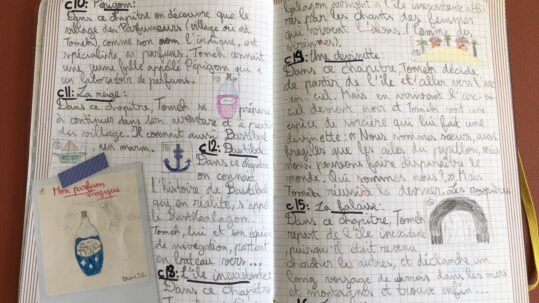 c10: Pépigom:
Dans ce chapitre on découvre que le
village des Parfumeurs (village où est
Tomek), comme son nom l'indique, est
spécialiste en parfums. Tomek connait
une jeune fille appelé Pépigom qui a
un laboratoir de parfums.
c11: La neige:
Dans ce chapitre, Tomek se prépare
à continuer dans son aventure et à partir
du village. Il connait aussi Bastibal
un marin.
c12: Bastibal:
Dans ce chapitre
on connait
l'histoire de Bastibal
qui, en réalité, s'app
Bastibalagom.
Tomek, lui et son équi
de navigation, partent
en bateau vers...
c13: L'île inexistante:
Dans ce chapitre
Mon parfum
magique
l'île inexistante
par les chants des femmes
qui vivent
c14: Une devinette
Dans ce chapitre, Tomek décide
de partir de l'île et aller vers l'arc-
en-ciel. Mais en arrivant l'arc-en-
ciel devient noir et Tomek voit une
espèce de sorcière qui lui fait une
devinette: « Nous sommes sœurs, aussi
fragiles que les ailes du papillon, mais
nous pouvons faire disparaître le
monde. Qui sommes nous? ». Mais
Tomek réussira la deviner. Les paupières
c15: La falaise:
Dans ce chapitre, Tomek
repart de l'île inexistante
puisqu'il était revenu
chercher les autres, et déclanche un
long voyage de dans les mers
et montagnes et trouve enfin...